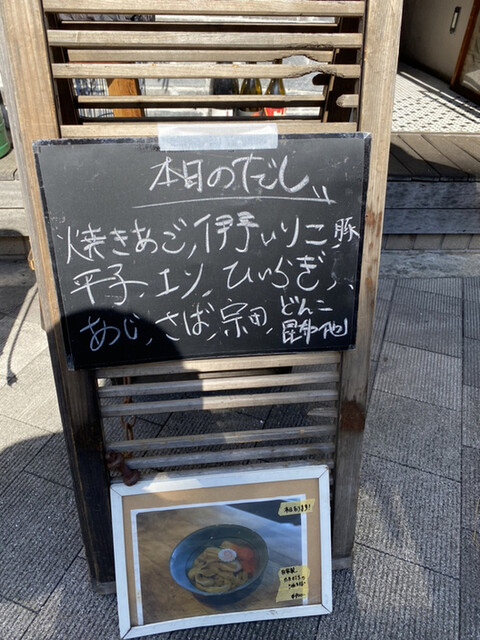 本日のだし
焼きあご、伊予いりこ、豚
平子、エソ、ひいらぎ、
あじ、さば、宗田、どんこ
昆布 他